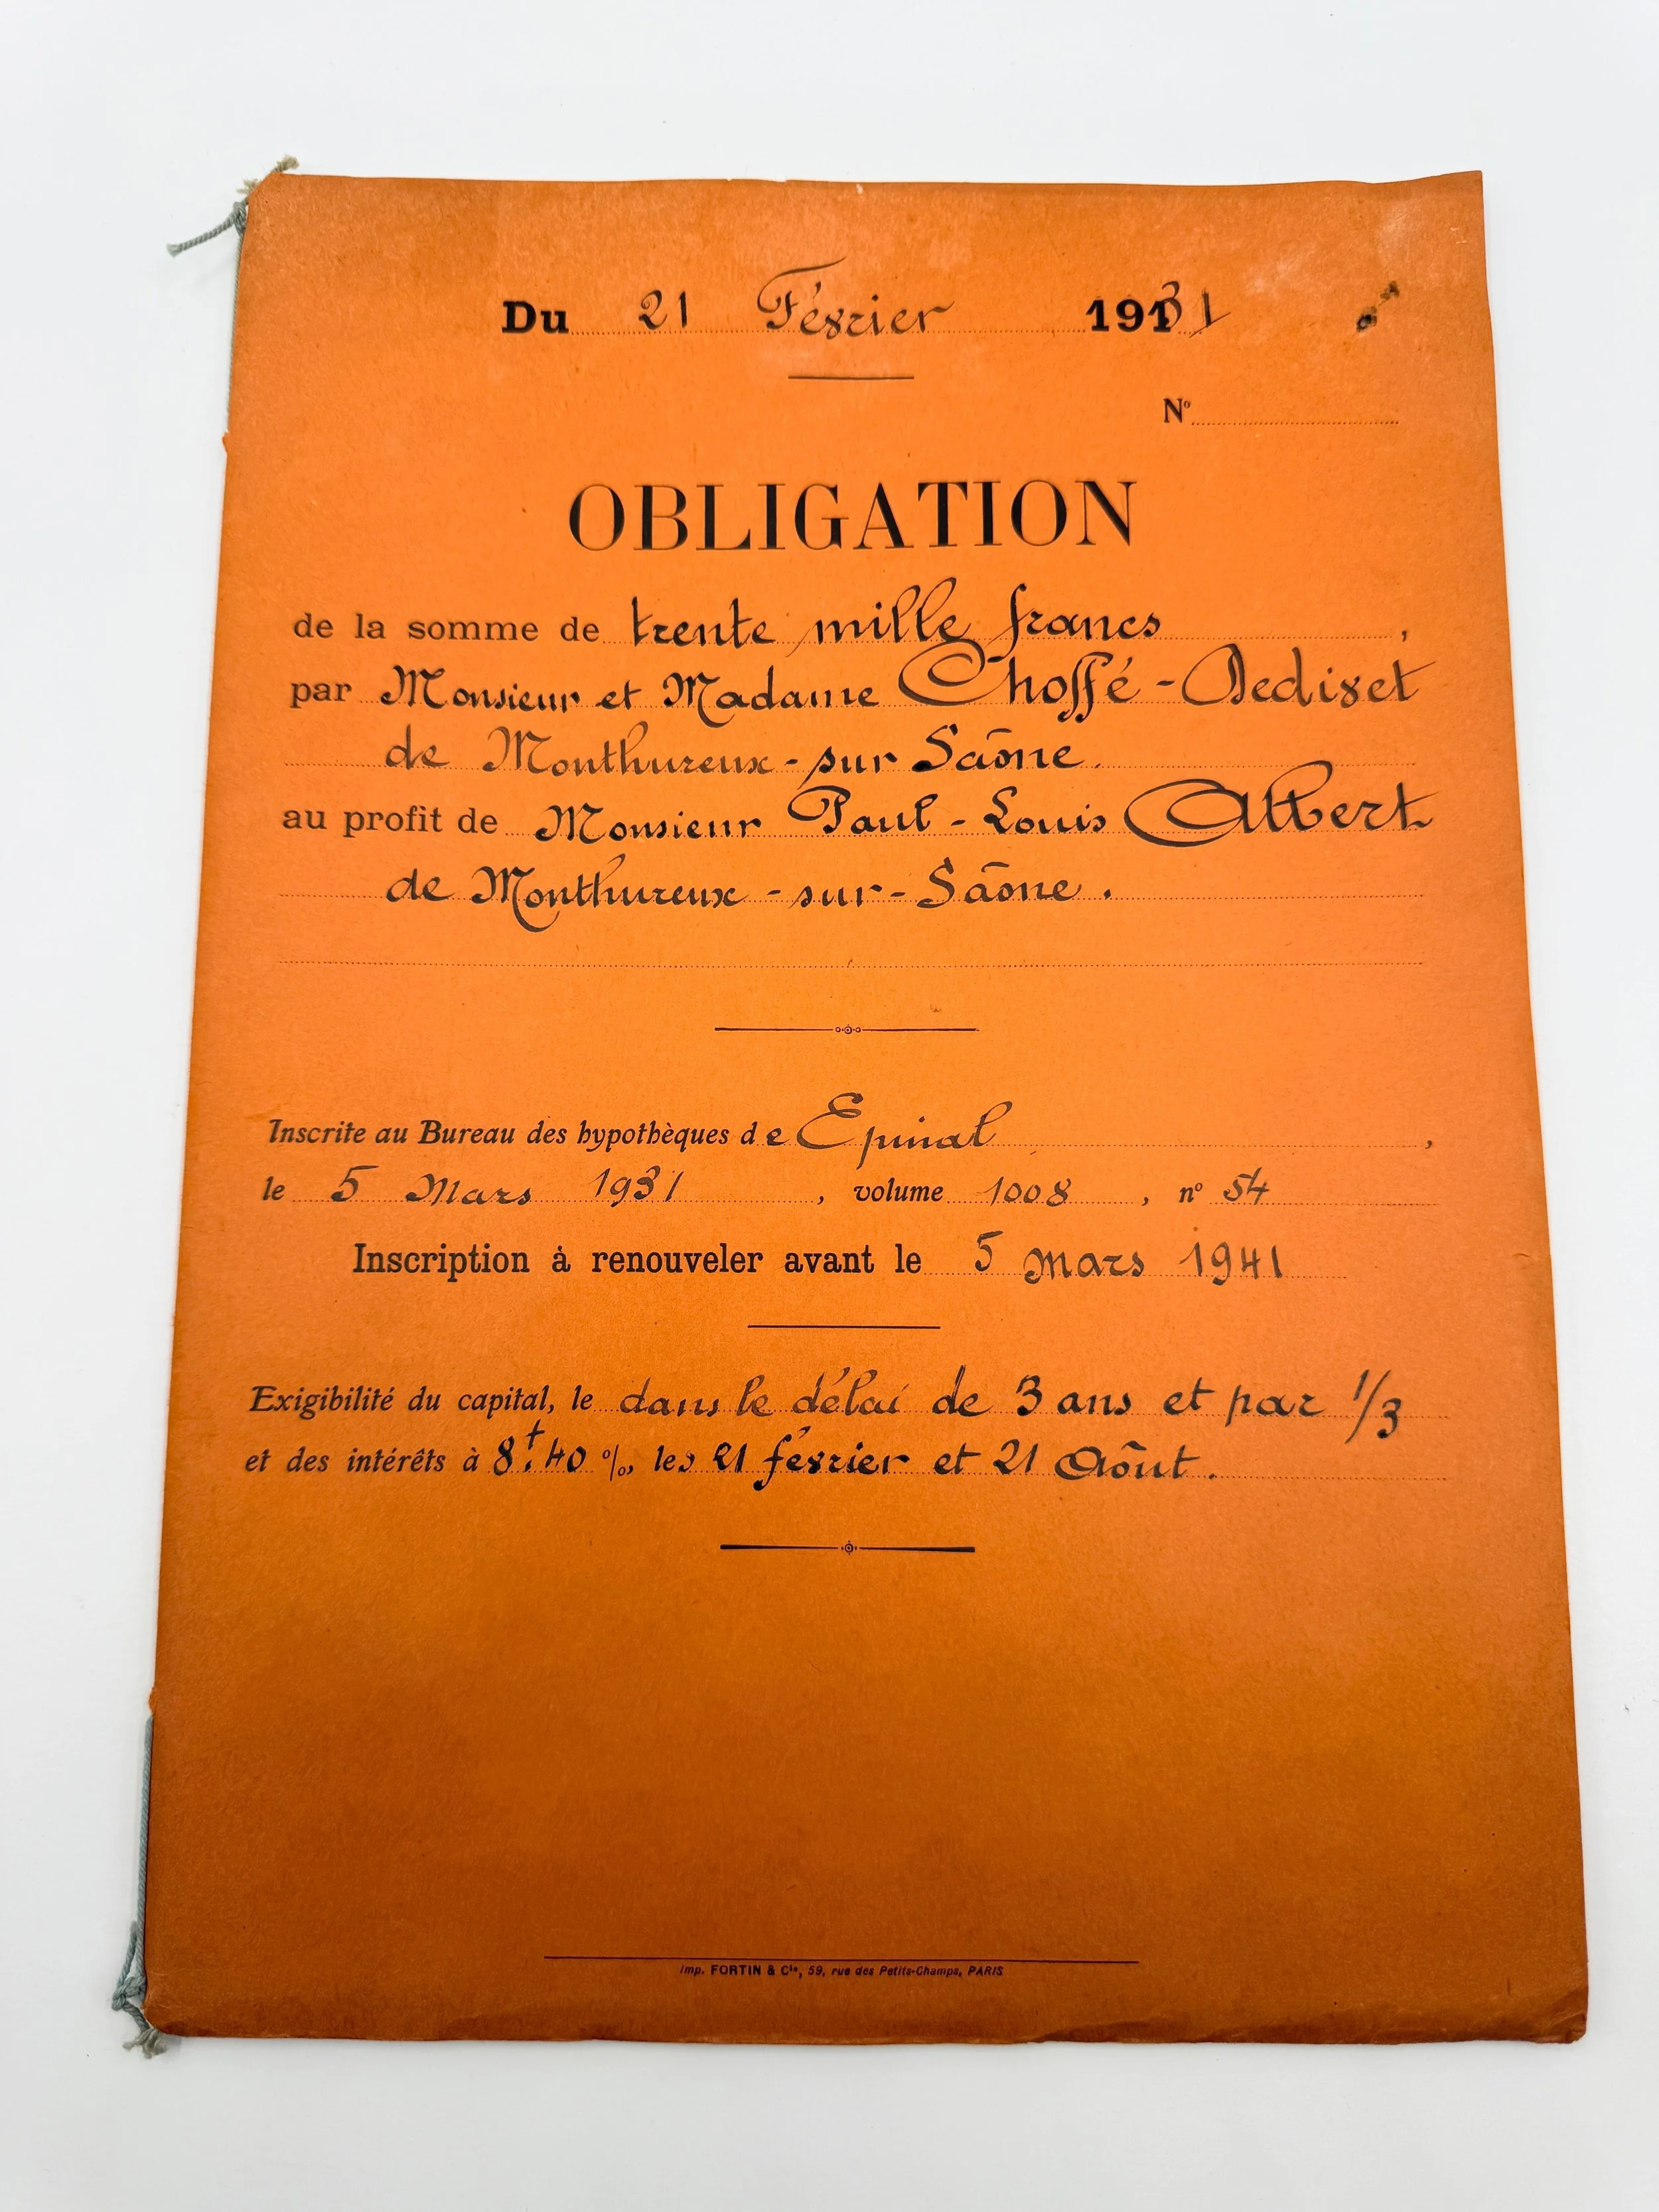 Du 21 Février 1931
N°
OBLIGATION
de la somme de trente mille francs,
par Monsieur et Madame Choffé-
de Monthureux-sur Saône.
au profit de Monsieur Paul-Louis Albert
de Monthureux-sur-Saône.
Inscrite au Bureau des hypothèques de Epinal,
le 5 Mars 1931, volume 1008, n° 54
Inscription à renouveler avant le 5 mars 1941
Exigibilité du capital, le dans le délai de 3 ans et par 1/3
et des intérêts à 8f.40 %, les 21 février et 21 Août.
Imp. FORTIN & Cie, 59, rue des Petits-Champs, PARIS